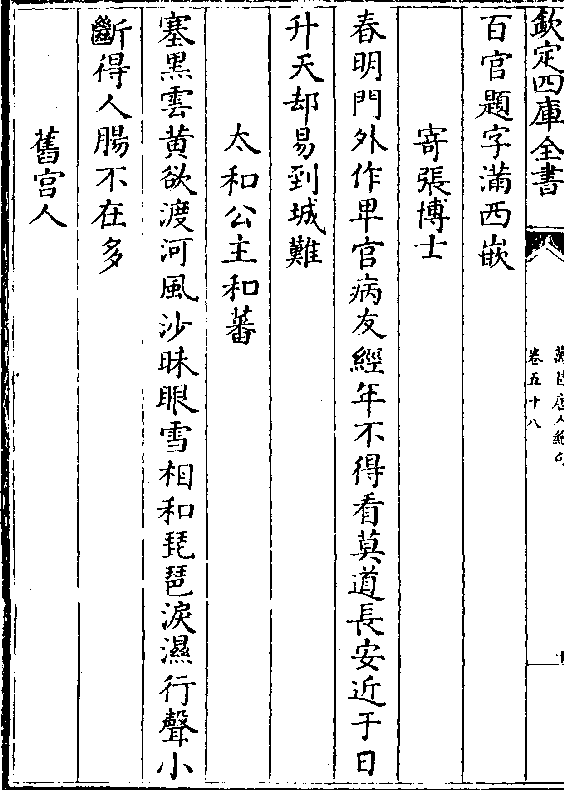 欽定四庫全書
卷五十八
百官題字滿西嵌
寄張博士
春明門外作卑官病友經年不得看莫道長安近于日
升天却易到城難
太和公主和蕃
塞黑雲黄欲渡河風沙眯眼雪相和琵琶淚濕行聲小
斷得人腸不在多
舊宫人